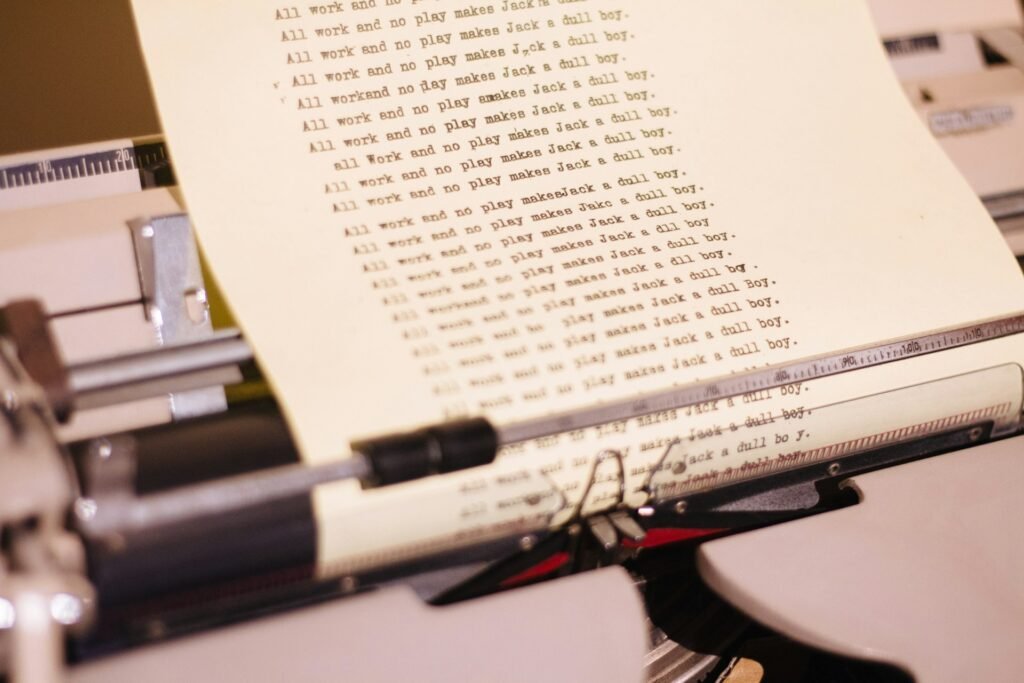 All work and no
All work and no play makes Jack a
All work and no play makes Jack a dull boy.
All work and no play makes J,ck a dull boy.
All workand no play makes Jack a dull boy.
All work and no play amakes Jack a dull boy.
All work and no play makes Jack a dull boy.
all Work and no play makes Jack a dull boy.
All work and no play makes Jack a dull boy.
All work and no play makes Jack a dull boy.
All work and no play makesJack a dull boy.
All work and no play makes Jakc a dull boy.
All work and no play makes Jack a dull boy.
All work and no play makes Jack a dll boy
All work and no play makes Jack a dull boy.
All workand no play makes Jack a dll boy.
All work and no play makes Jack a dull boy .
All work and no play makes Jack a dull Boy.
All work and no play makes Jack a dull boy.
All work and no play makes Jack a dull boy.
All work and no play makes Jack a dull boy.
and no play makes Jack a dull boy.
all work and no play makes Jack a dull boy.
all work and no play makes Jack a dull bo y.
all work makes Jack a dull boy.
10 20
70 80 90 100